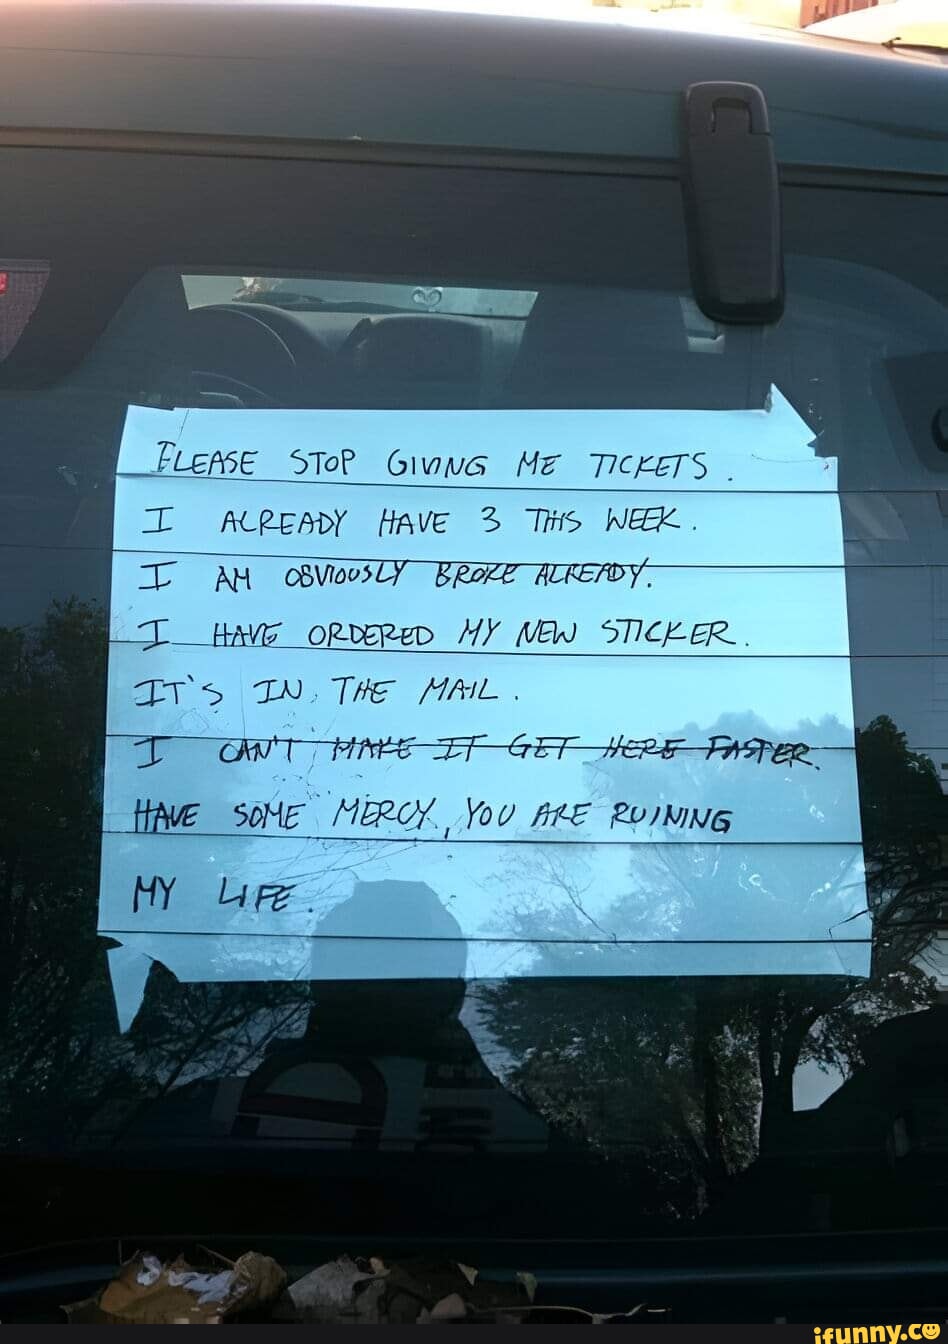 PLEASE STOP GIVING ME TICKETS.
I ALREADY HAVE 3 THIS WEEK.
I AM OBVIOUSLY BROKE ALREADY.
I HAVE ORDERED MY NEW STICKER.
IT'S IN THE MAIL.
I CAN'T MAKE IT GET HERE FASTER.
HAVE SOME MERCY, YOU ARE RUINING
MY LIFE.
ifunny.co